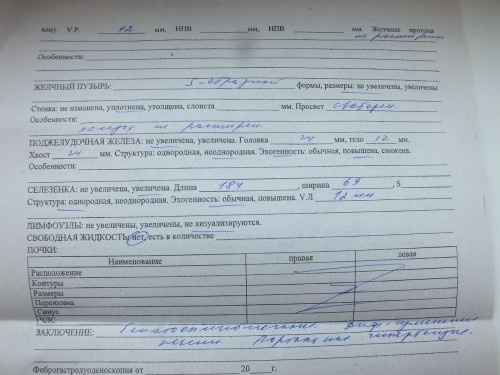 вещ). V.P. 12 мм, НПВ мм, НПВ мм. Желчные протоки
не расширены
Особенности:
ЖЕЛЧНЫЙ ПУЗЫРЬ: S-образной формы, размеры: не увеличены, увеличены
Стенка: не изменена, уплотнена, утолщена, слоиста мм. Просвет свободен.
Особенности:
холедох не расширен
ПОДЖЕЛУДОЧНАЯ ЖЕЛЕЗА: не увеличена, увеличена. Головка 24 мм, тело 12 мм.
Хвост 24 мм. Структура: однородная, неоднородная. Эхогенность: обычная, повышена, снижена.
Особенности:
СЕЛЕЗЕНКА: не увеличена, увеличена. Длина 184, ширина 69, S
Структура: однородная, неоднородная. Эхогенность: обычная, повышена. V.Л 12 мм
ЛИМФОУЗЛЫ: не увеличены, увеличены, не визуализируются.
СВОБОДНАЯ ЖИДКОСТЬ: нет, есть в количестве
ПОЧКИ:
Наименование правая левая
Расположение
Контуры
Размеры
Паренхима
Синус
ЧЛС
ЗАКЛЮЧЕНИЕ: Гепатоспленомегалия. Диф. изменения
печени. Портальная гипертензия.
Фиброгастродуоденоскопия от 20 г.